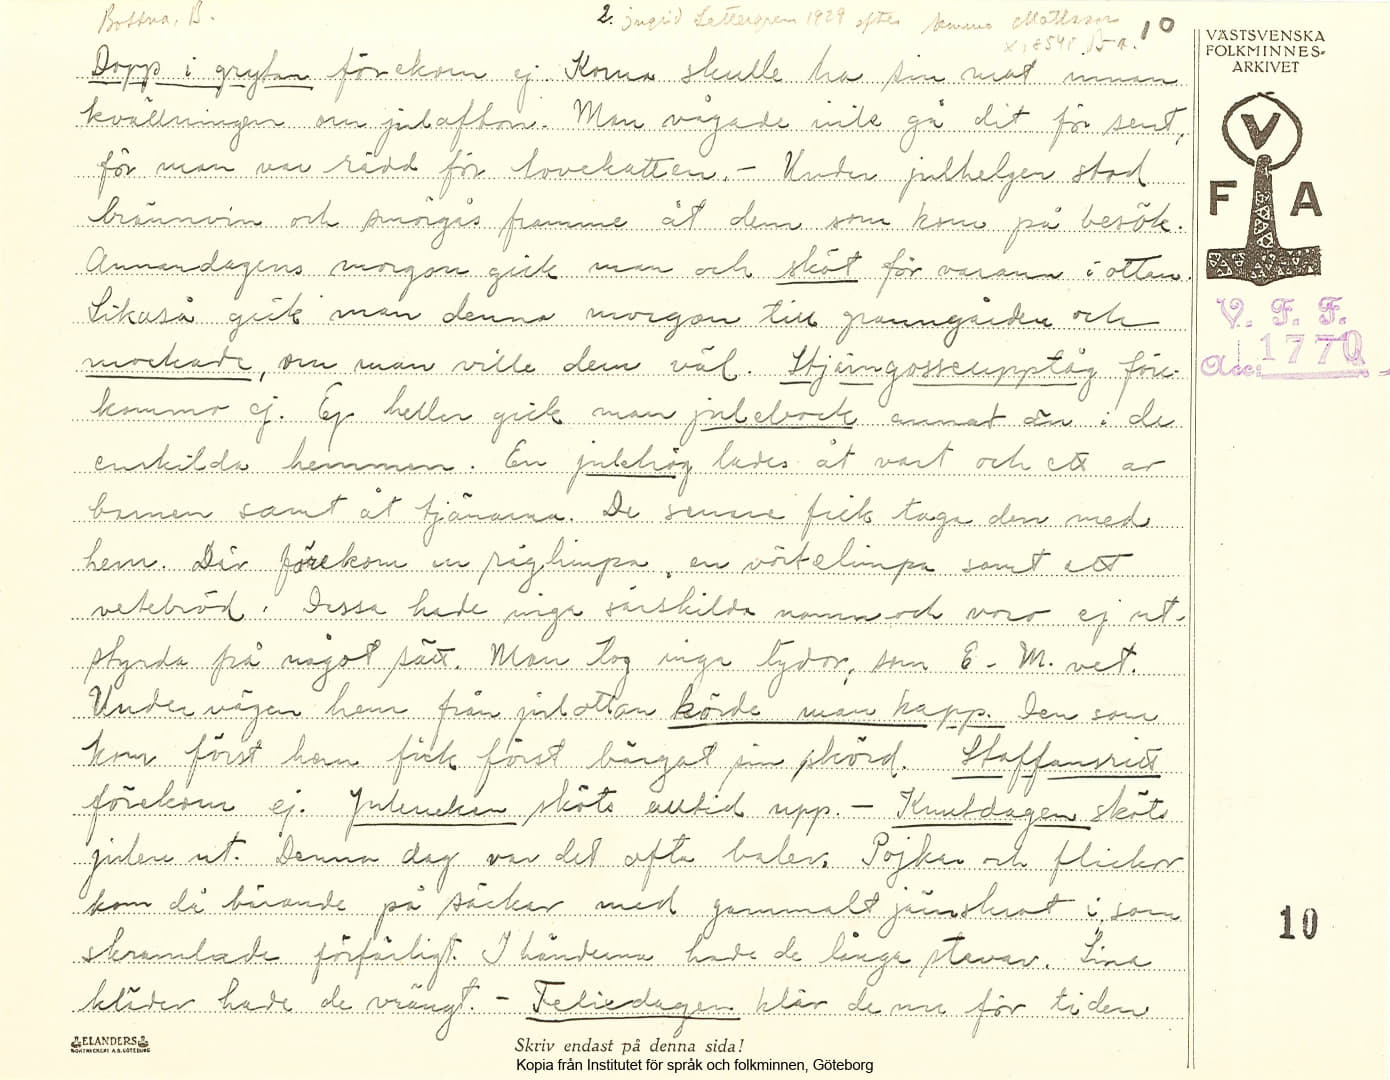 Bottna, B.
2. Ingrid Settergren 1929 efter
10
VÄSTSVENSKA
FOLKMINNES-
ARKIVET
Dopp i grytan förekom ej. Korna skulle ha sin mat innan
kvällningen om julafton. Man vågade inte gå dit för sent,
för man var rädd för lovekatten. – Under julhelgen stod
brännvin och smörgås framme åt dem som kom på besök.
Annandagens morgon gick man och sköt för varann i ottan.
Likaså gick man denna morgon till granngården och
mockade, om man ville dem väl. Stjärngosseupptåg före-
kommo ej. Ej heller gick man julebock annat än i de
enskilda hemmen. En julehög lades åt vart och ett av
barnen samt åt tjänarna. De senare fick taga den med
hem. Där förekom en råglimpa, en vörtelimpa samt ett
vetebröd. Dessa hade inga särskilda namn och voro ej ut-
styrda på något sätt. Man tog inga tydor, som E. M. vet.
Under vägen hem från julottan körde man kapp. Den som
kom först hem fick först bärgat sin skörd. Staffansritt
förekom ej. Juleneken sköts alltid upp. – Knutdagen sköts
julen ut. Denna dag var det ofta baler. Pojkar och flickor
kom då bärande på säckar med gammalt järnskrot i, som
skramlade förfärligt. I händerna hade de långa stavar. Sina
kläder hade de vrängt. – Feliedagen klär de nu för tiden
V
F A
V. F. F.
Acc: 1770
10
ELANDERS
BOKTRYCKERI A.B. GÖTEBORG
Skriv endast på denna sida!
Kopia från Institutet för språk och folkminnen, Göteborg